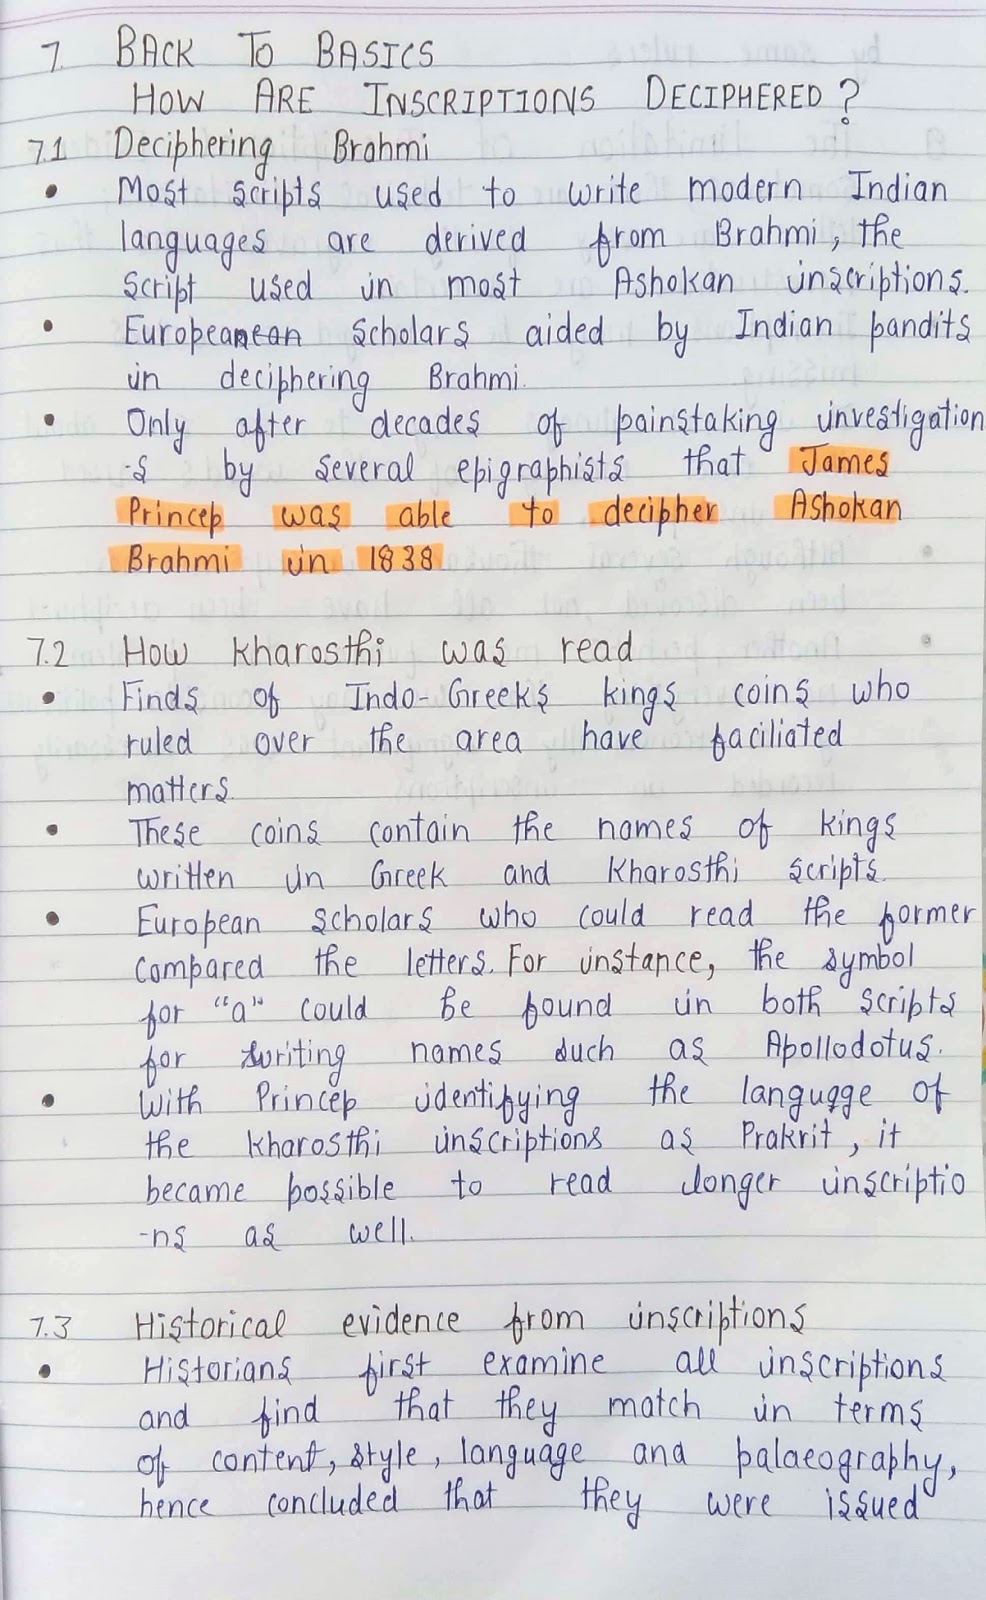 7. BACK TO BASICS
HOW ARE INSCRIPTIONS DECIPHERED?
7.1 Deciphering Brahmi
• Most scripts used to write modern Indian
languages are derived from Brahmi, the
script used in most Ashokan inscriptions.
• Europeanean scholars aided by Indian pandits
in deciphering Brahmi.
• Only after decades of painstaking investigation
-s by several epigraphists that James
Princep was able to decipher Ashokan
Brahmi in 1838
7.2 How Kharosthi was read
• Finds of Indo-Greeks kings coins who
ruled over the area have faciliated
matters.
• These coins contain the names of kings
written in Greek and Kharosthi scripts.
• European scholars who could read the former
compared the letters. For instance, the symbol
for "a" could be found in both scripts
for writing names such as Apollodotus.
• With Princep identifying the langugge of
the Kharosthi inscriptions as Prakrit, it
became possible to read longer inscriptio
-ns as well.
7.3 Historical evidence from inscriptions
• Historians first examine all inscriptions
and find that they match in terms
of content, style, language and palaeography,
hence concluded that they were issued